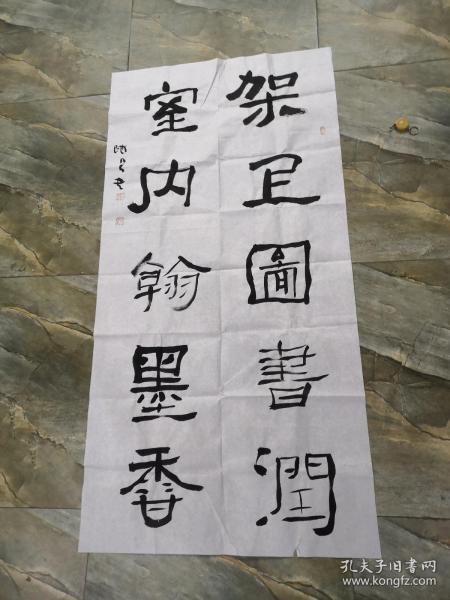 架卫圖書潤
室内翰墨香
孔夫子旧书网
www.kongfz.com